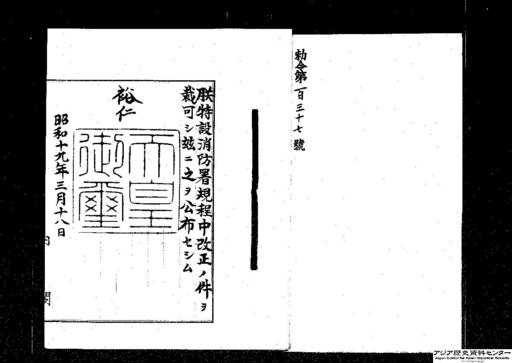 勅令第百三十七號
朕特設消防署規程中改正ノ件ヲ
裁可シ玆ニ之ヲ公布セシム
裕仁
天皇御璽
昭和十九年三月十八日
内閣
アジア歴史資料センター
Japan Center for Asian Historical Records